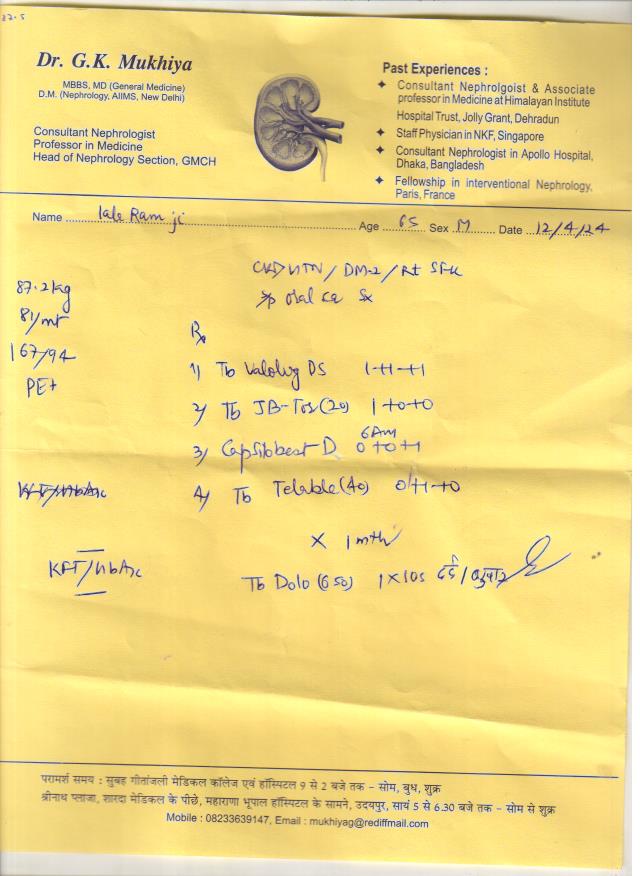 Dr. G.K. Mukhiya
MBBS, MD (General Medicine)
D.M. (Nephrology, AIIMS, New Delhi)
Consultant Nephrologist
Professor in Medicine
Head of Nephrology Section, GMCH
Past Experiences :
Consultant Nephrolgoist & Associate
professor in Medicine at Himalayan Institute
Hospital Trust, Jolly Grant, Dehradun
Staff Physician in NKF, Singapore
Consultant Nephrologist in Apollo Hospital,
Dhaka, Bangladesh
Fellowship in interventional Nephrology,
Paris, France
Name Lale Ram ji Age 65 Sex M Date 12/4/24
CKD HTN / DM-2 / Rt
oral ca
87.2 kg
81/mt
167/94
PE+
Rx
1) Tb DS 1+1+1
2) Tb JB-Tor (20) 1+0+0
6 Am
3) Cap D 0+0+1
KFT/HbA1c
4) Tb (40) 0+1+0
x 1 mth
KFT/HbA1c
Tb Dolo (650) 1 x 10s दर्द / बुखार
परामर्श समय : सुबह गीतांजली मेडिकल कॉलेज एवं हॉस्पिटल 9 से 2 बजे तक - सोम, बुध, शुक्र
श्रीनाथ प्लाजा, शारदा मेडिकल के पीछे, महाराणा भूपाल हॉस्पिटल के सामने, उदयपुर, सायं 5 से 6.30 बजे तक - सोम से शुक्र
Mobile : 08233639147, Email : mukhiyag@rediffmail.com